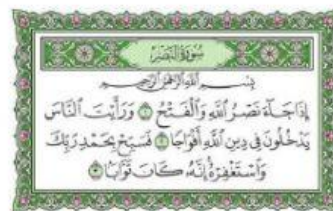 سُورَةُ النَّصْرِ
بِسْمِ اللَّهِ الرَّحْمَٰنِ الرَّحِيمِ
إِذَا جَاءَ نَصْرُ اللَّهِ وَالْفَتْحُ ۝١ وَرَأَيْتَ النَّاسَ
يَدْخُلُونَ فِي دِينِ اللَّهِ أَفْوَاجًا ۝٢ فَسَبِّحْ بِحَمْدِ رَبِّكَ
وَاسْتَغْفِرْهُ إِنَّهُ كَانَ تَوَّابًا ۝٣